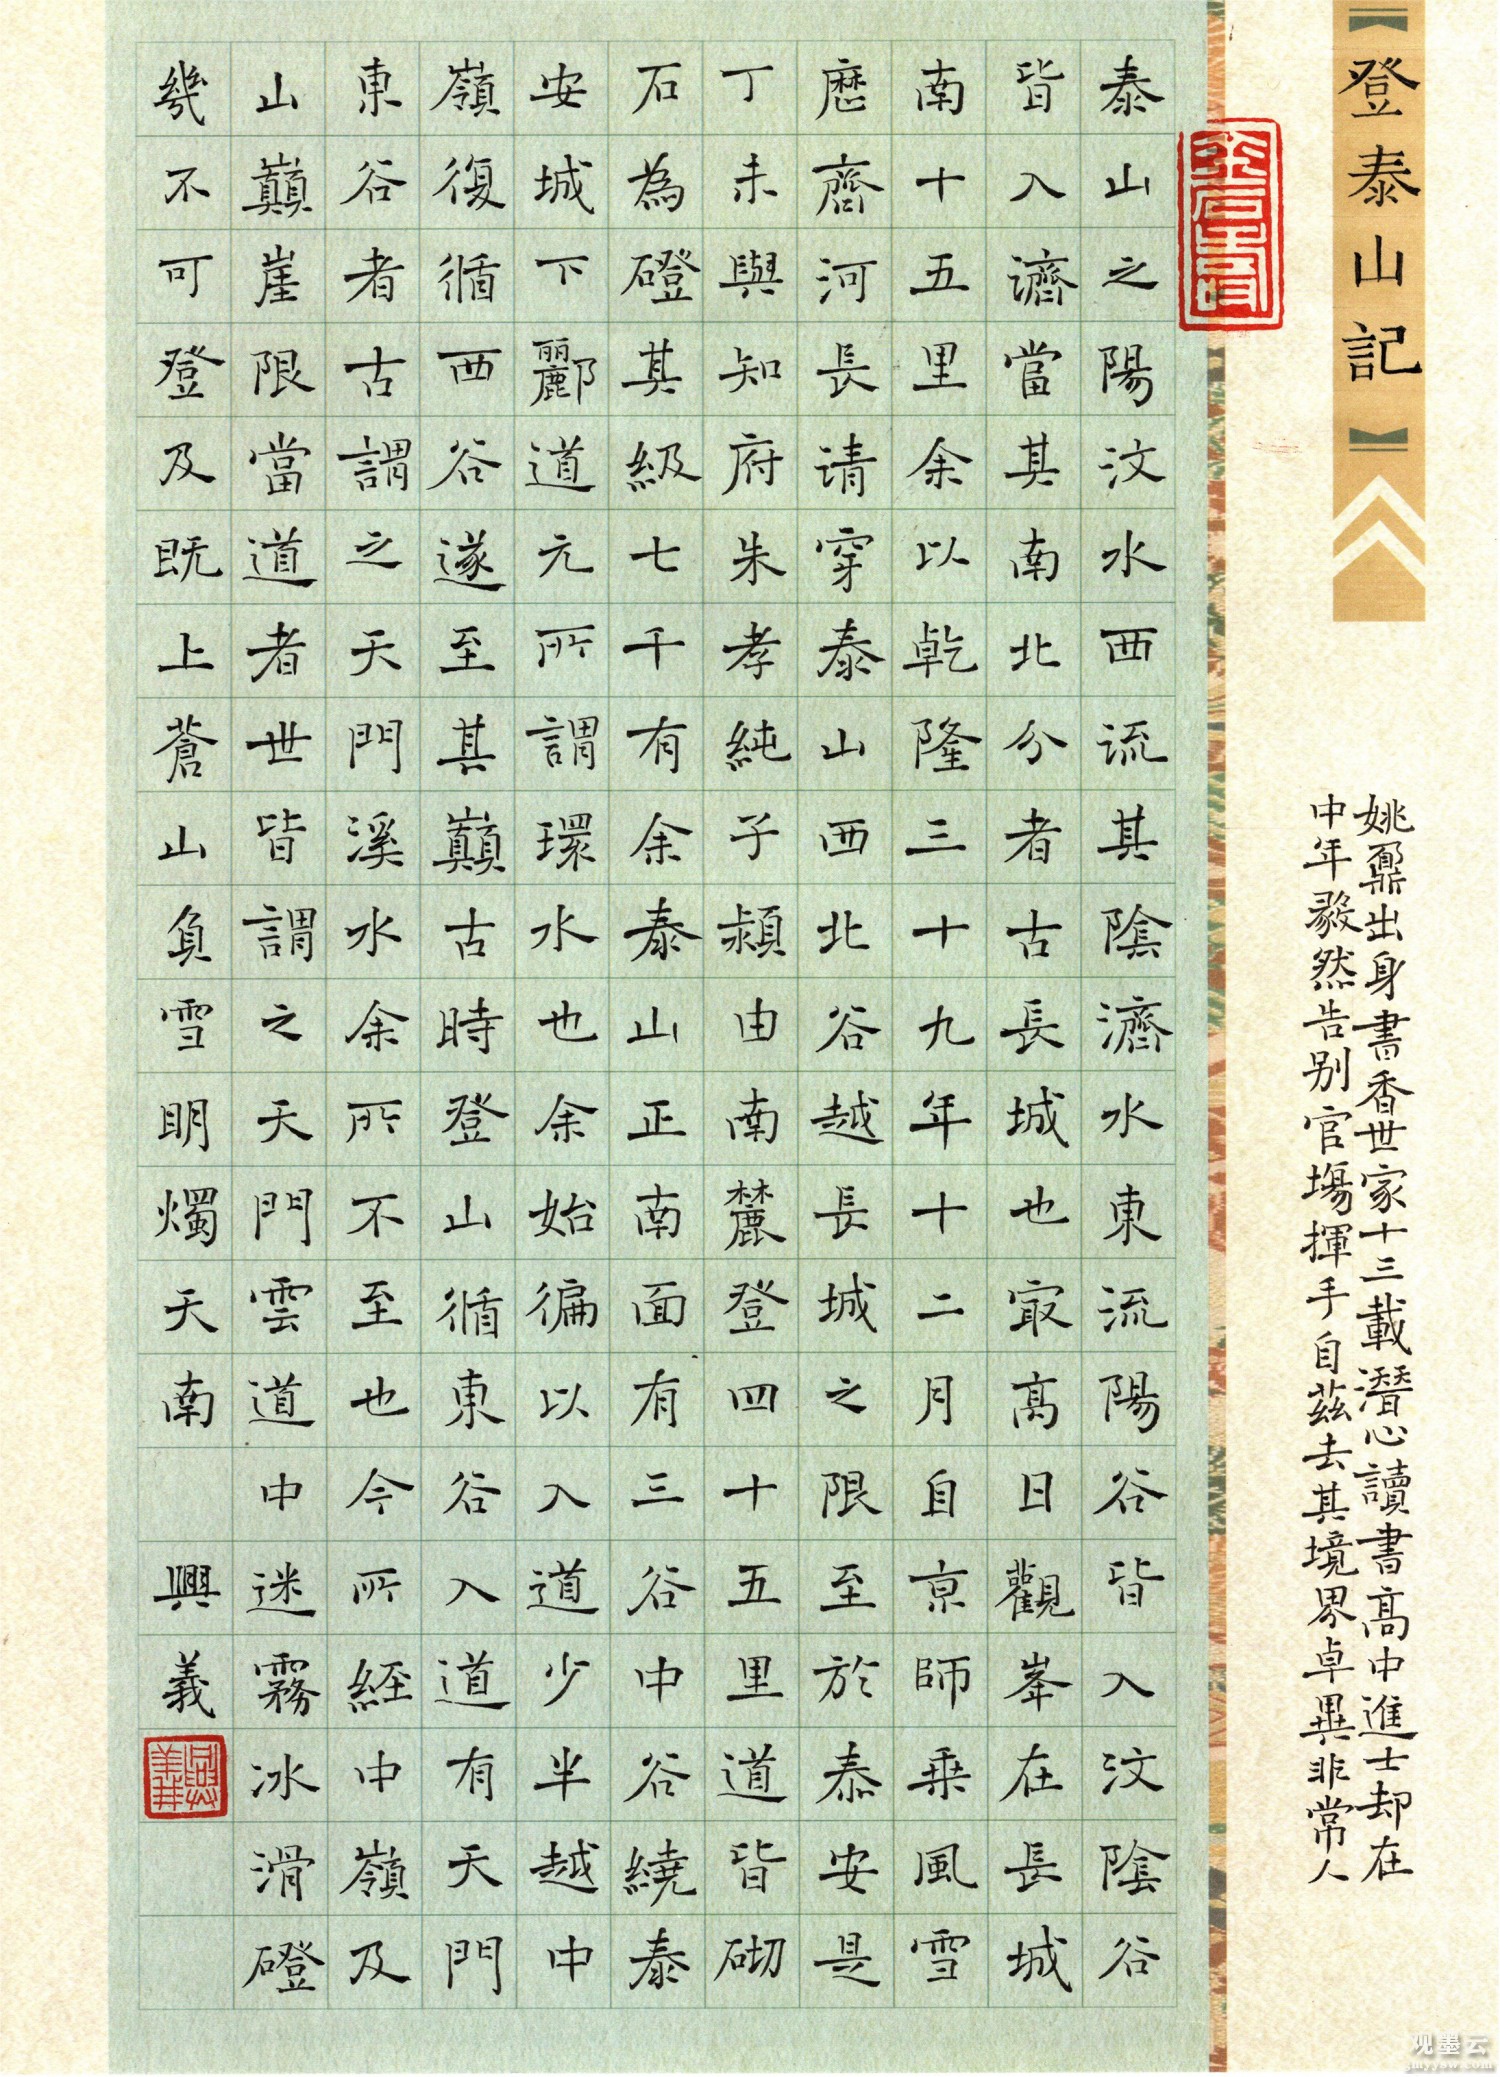 【登泰山記】
姚鼐出身書香世家十三載潛心讀書高中進士却在
中年毅然告别官場揮手自茲去其境界卓異非常人
泰山之陽汶水西流其陰濟水東流陽谷皆入汶陰谷
皆入濟當其南北分者古長城也寂高日觀峯在長城
南十五里余以乾隆三十九年十二月自京師乗風雪
歷齊河長请穿泰山西北谷越長城之限至於泰安是
丁未與知府朱孝純子潁由南麓登四十五里道皆砌
石為磴其級七千有余泰山正南面有三谷中谷繞泰
安城下酈道元所謂環水也余始循以入道少半越中
嶺復循西谷遂至其巔古時登山循東谷入道有天門
東谷者古謂之天門溪水余所不至也今所經中嶺及
山巔崖限當道者世皆謂之天門雲道中迷霧冰滑磴
幾不可登及既上蒼山負雪明燭天南
興義
观墨云
jmyysw.com